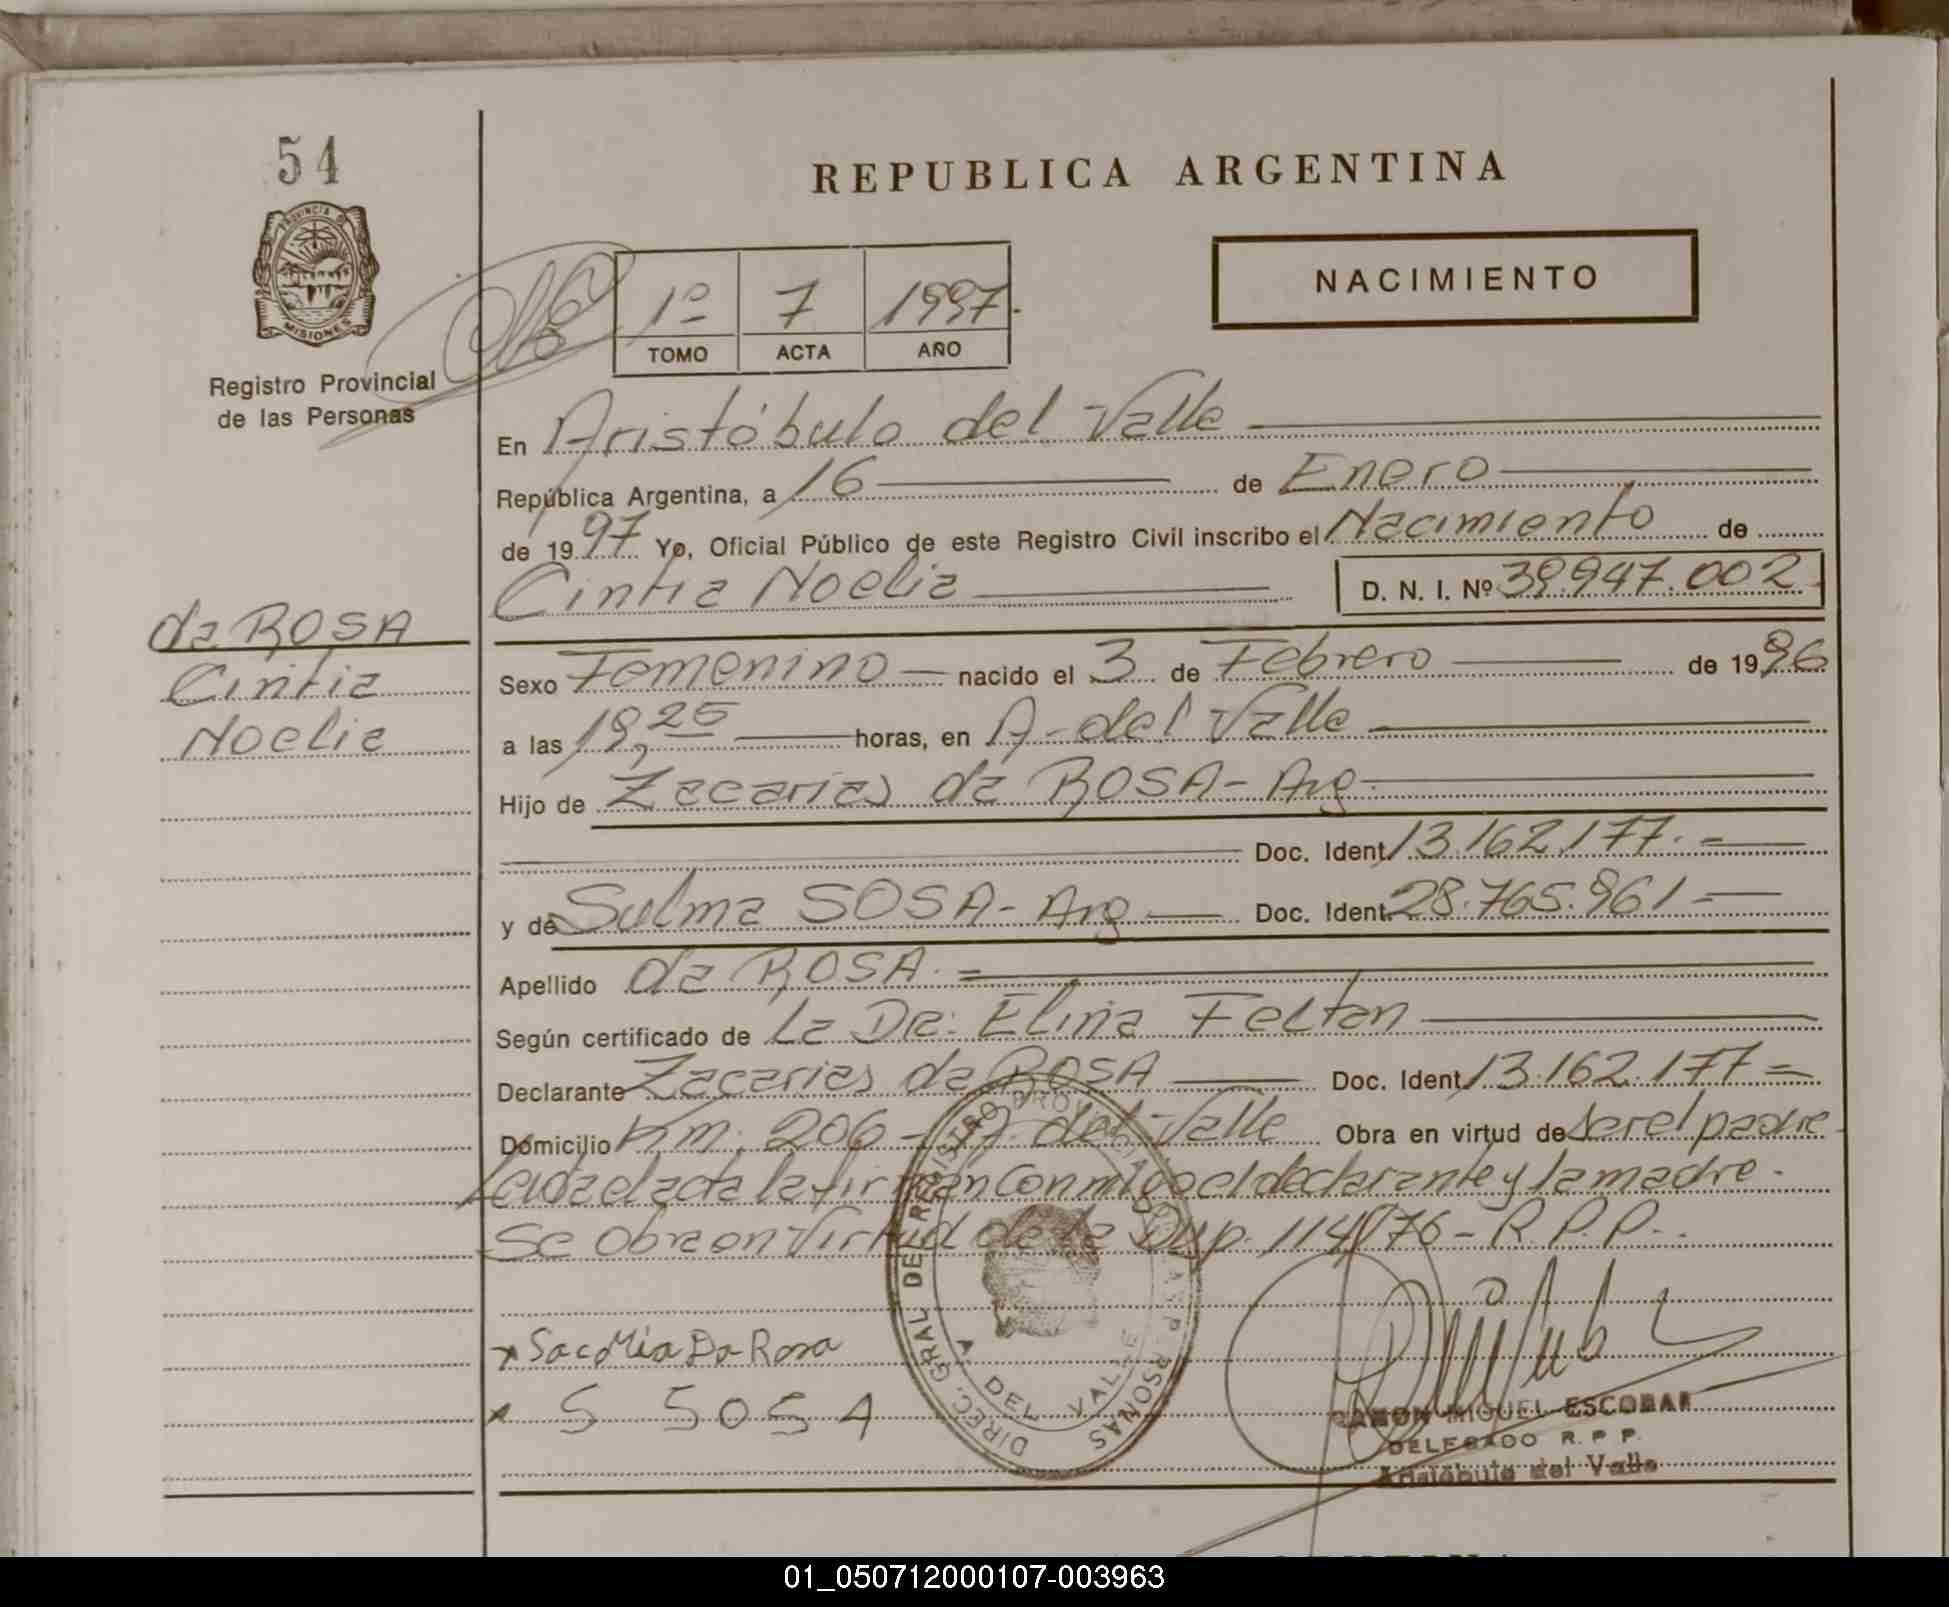 54
REPUBLICA ARGENTINA
PROVINCIA D
MISIONES
Registro Provincial
de las Personas
1º 7 1997.
TOMO ACTA AÑO
NACIMIENTO
En Aristóbulo del Valle
República Argentina, a 16 de Enero
de 1997 Yo, Oficial Público de este Registro Civil inscribo el Nacimiento de
Cintia Noelia D. N. I. Nº 39.947.002
da ROSA
Cintia
Noelia
Sexo Femenino nacido el 3 de Febrero de 1996
a las 19,25 horas, en A. del Valle
Hijo de Zacarias da ROSA - Arg
Doc. Ident. 13.162.177.-
y de Sulma SOSA - Arg Doc. Ident. 28.765.961-
Apellido da ROSA.=
Según certificado de La Dra: Elina Feltan
Declarante Zacarias da ROSA Doc. Ident. 13.162.177=
Domicilio Km. 206 - A. del Valle Obra en virtud de ser el padre
Leida el acta la firman conmigo el declarante y la madre.
Se obra en virtud de la Dup. 114/76 - R.P.P..
DIREC. GRAL DE REGISTRO PROVINCIAL PERSONAS
A. DEL VALLE
x Da Rosa
x S SOSA
RAMON MIGUEL ESCOBAR
DELEGADO R. P. P.
Aristóbulo del Valle
01_050712000107-003963